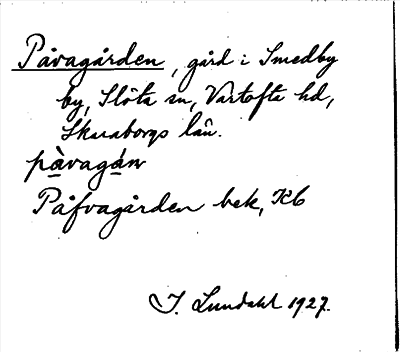 Påvagården, gård i Smedby
by, Slöta sn, Vartofta hd,
Skaraborgs län.
pàvagán
Påfvagården bek, Kb
I. Lundahl 1927.